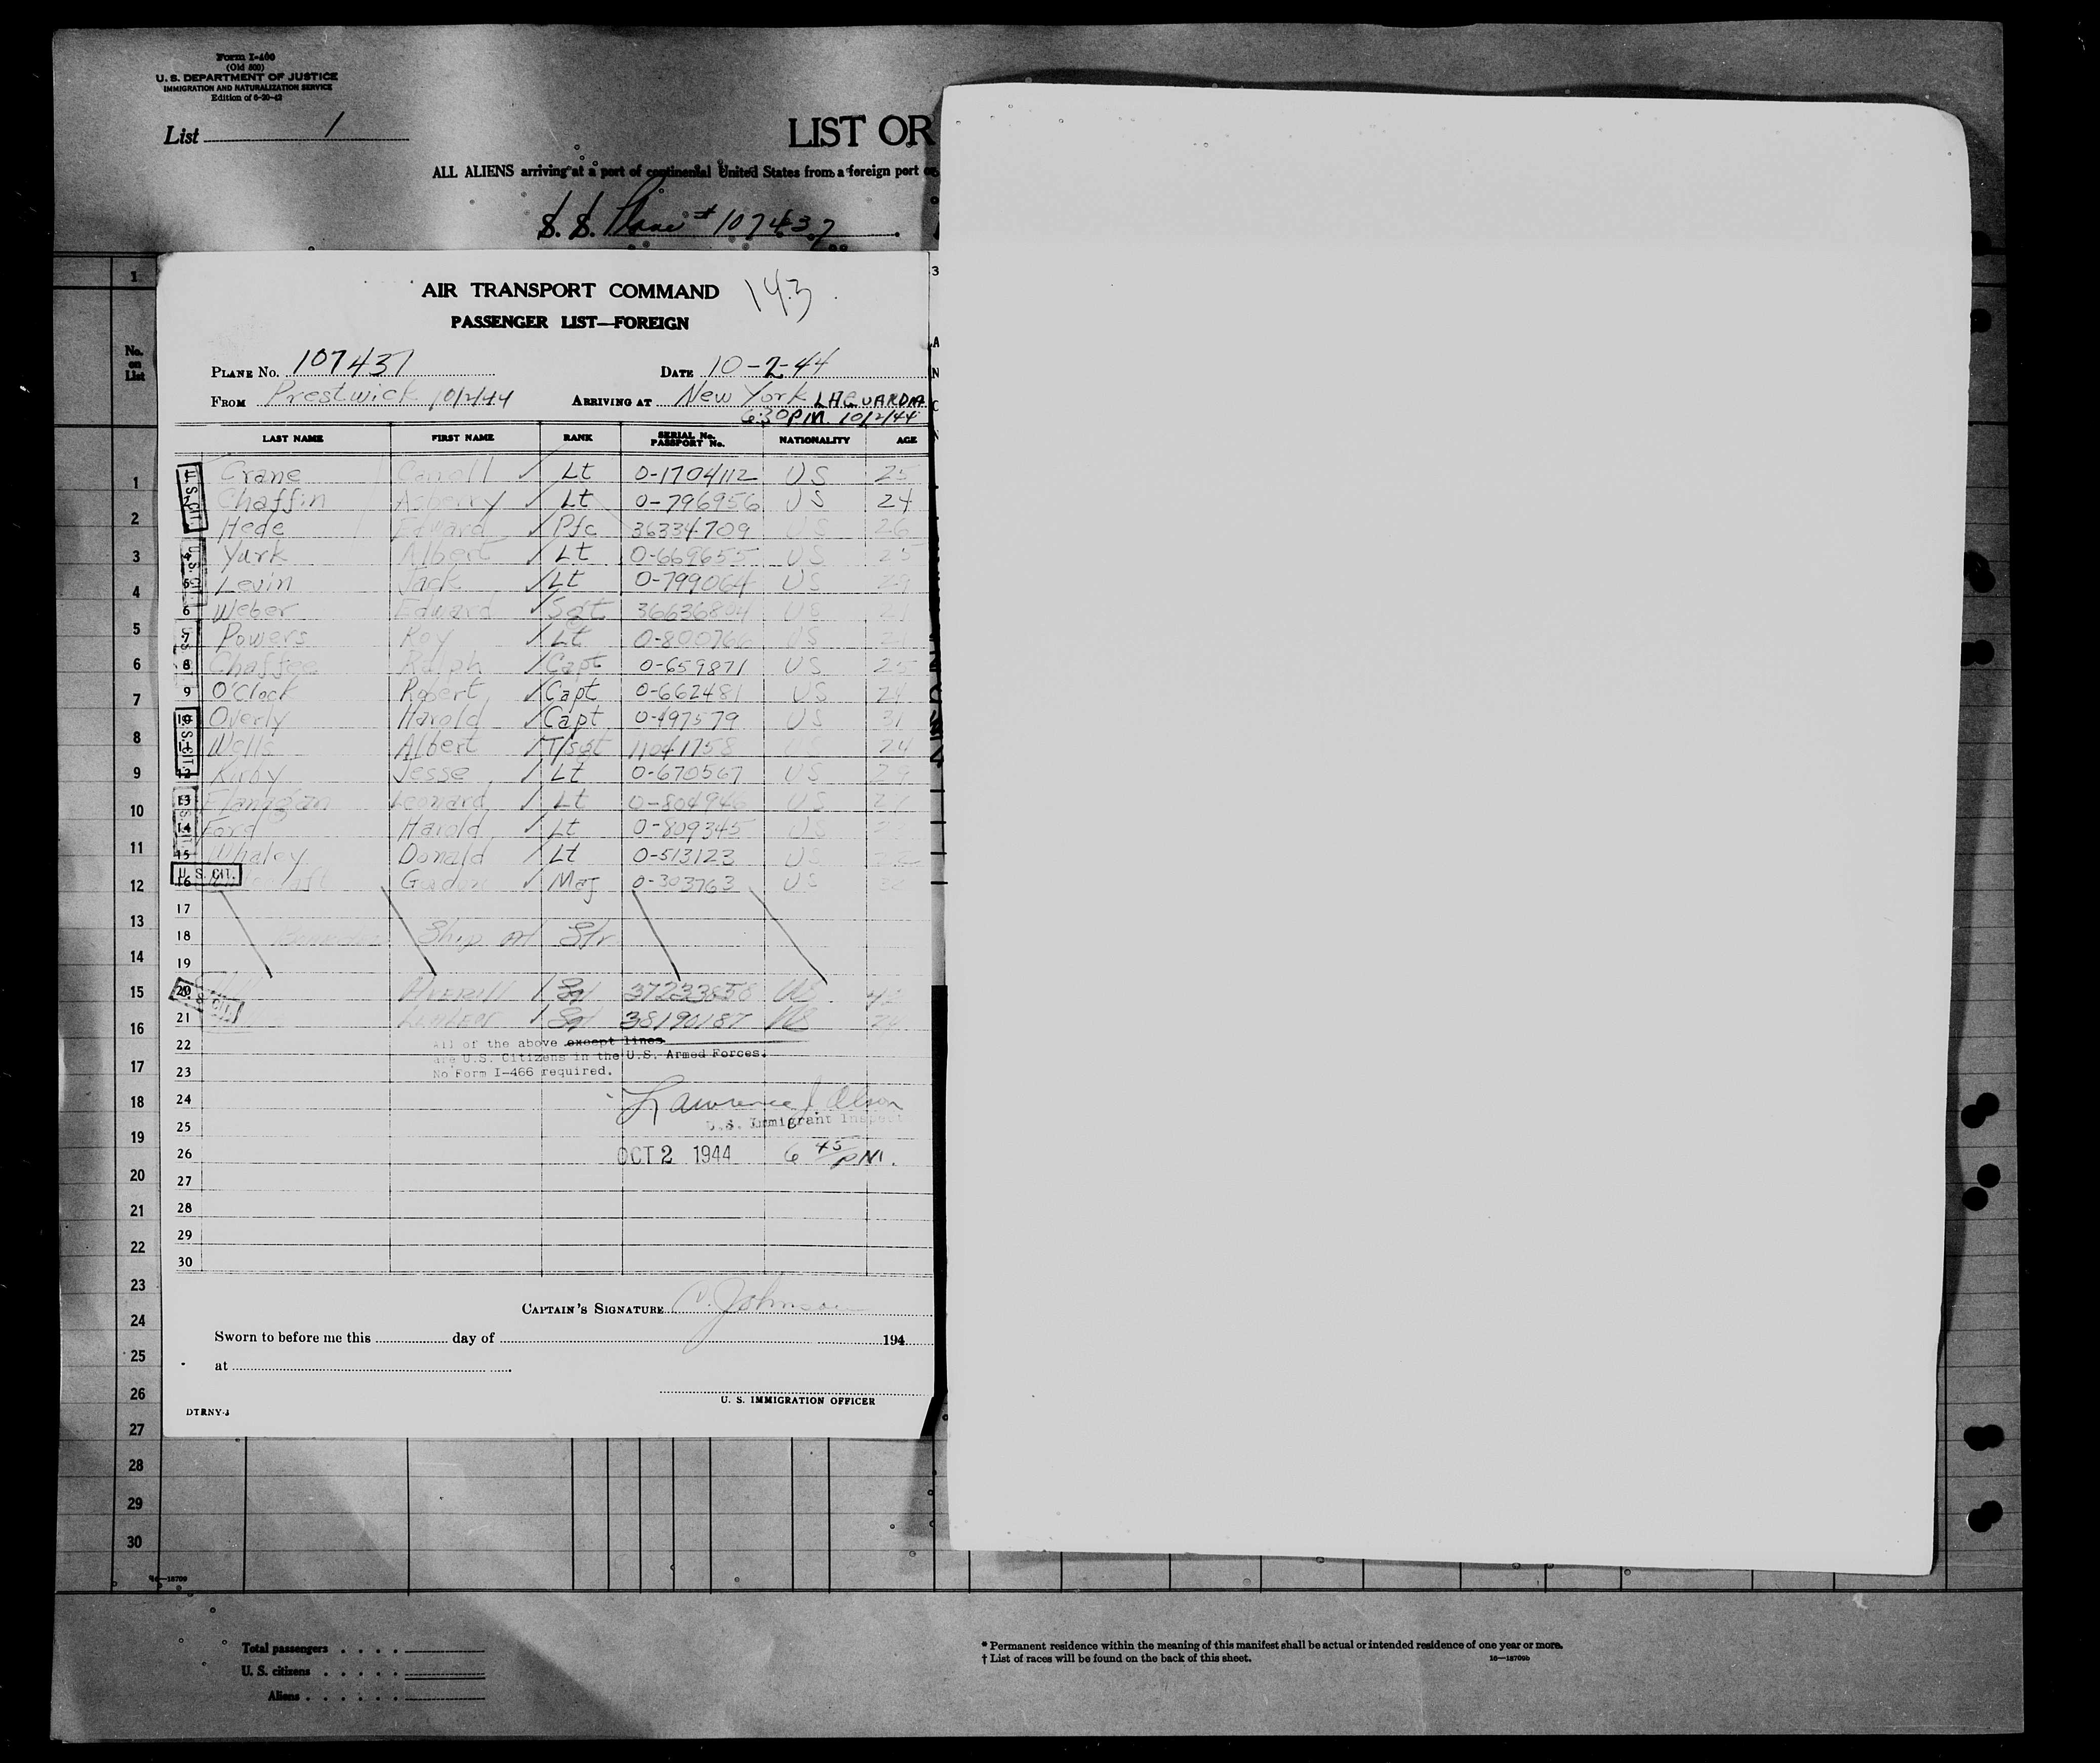 Form I-400
(Old 500)
U. S. DEPARTMENT OF JUSTICE
IMMIGRATION AND NATURALIZATION SERVICE
Edition of 6-20-42
List 1
LIST OR
ALL ALIENS arriving at a port of continental United States from a foreign port
S. S. Plane # 107437
AIR TRANSPORT COMMAND 143
PASSENGER LIST—FOREIGN
PLANE No. 107437 DATE 10-2-44
FROM Prestwick 10/2/44 ARRIVING AT New York LAGUARDIA
6:30 PM. 10/2/44
No. on List
LAST NAME FIRST NAME RANK SERIAL No. PASSPORT No. NATIONALITY AGE
Crane Carroll ✓ Lt 0-1704112 US 25
Chaffin Asberry ✓ Lt 0-796956 US 24
Hede Edward ✓ Pfc 36334709 US 26
4 Yurk Albert ✓ Lt 0-669655 US 25
5 Levin Jack ✓ Lt 0-799064 US
6 Weber Edward ✓ Sgt 36636804 US
7 Powers Roy ✓ Lt 0-800766 US
8 Chaffee Ralph ✓ Capt 0-659871 US 25
9 O'Clock Robert ✓ Capt 0-662481 US 24
10 Overly Harold ✓ Capt 0-497579 US 31
Wells Albert ✓ T/sgt 11041758 US 24
12 Kirby Jesse ✓ Lt 0-670567 US 29
13 Flanagan Leonard ✓ Lt 0-804946 US
14 Ford Harold ✓ Lt 0-809345 US
15 Whaley Donald ✓ Lt 0-513123 US
16 Gordon ✓ Maj 0-303763 US
U. S. CIT.
17
18 Ship
19
20 AVERILL Sgt 37233858 US
21 Sgt 38190187 US
22 All of the above except lines
are U.S. Citizens in the U.S. Armed Forces.
23 No Form I-466 required.
24 Lawrence J. Olson
25 U.S. Immigrant Inspect
26 OCT 2 1944 6 45 PM.
27
28
29
30
CAPTAIN'S SIGNATURE Johnson
Sworn to before me this day of 194
at
U. S. IMMIGRATION OFFICER
DTRNY-3
1
1
2
3
4
5
6
7
8
9
10
11
12
13
14
15
16
17
18
19
20
21
22
23
24
25
26
27
28
29
30
16—18709
Total passengers . . . .
U. S. citizens . . . . .
Aliens . . . . . .
* Permanent residence within the meaning of this manifest shall be actual or intended residence of one year or more.
† List of races will be found on the back of this sheet. 16—18709b